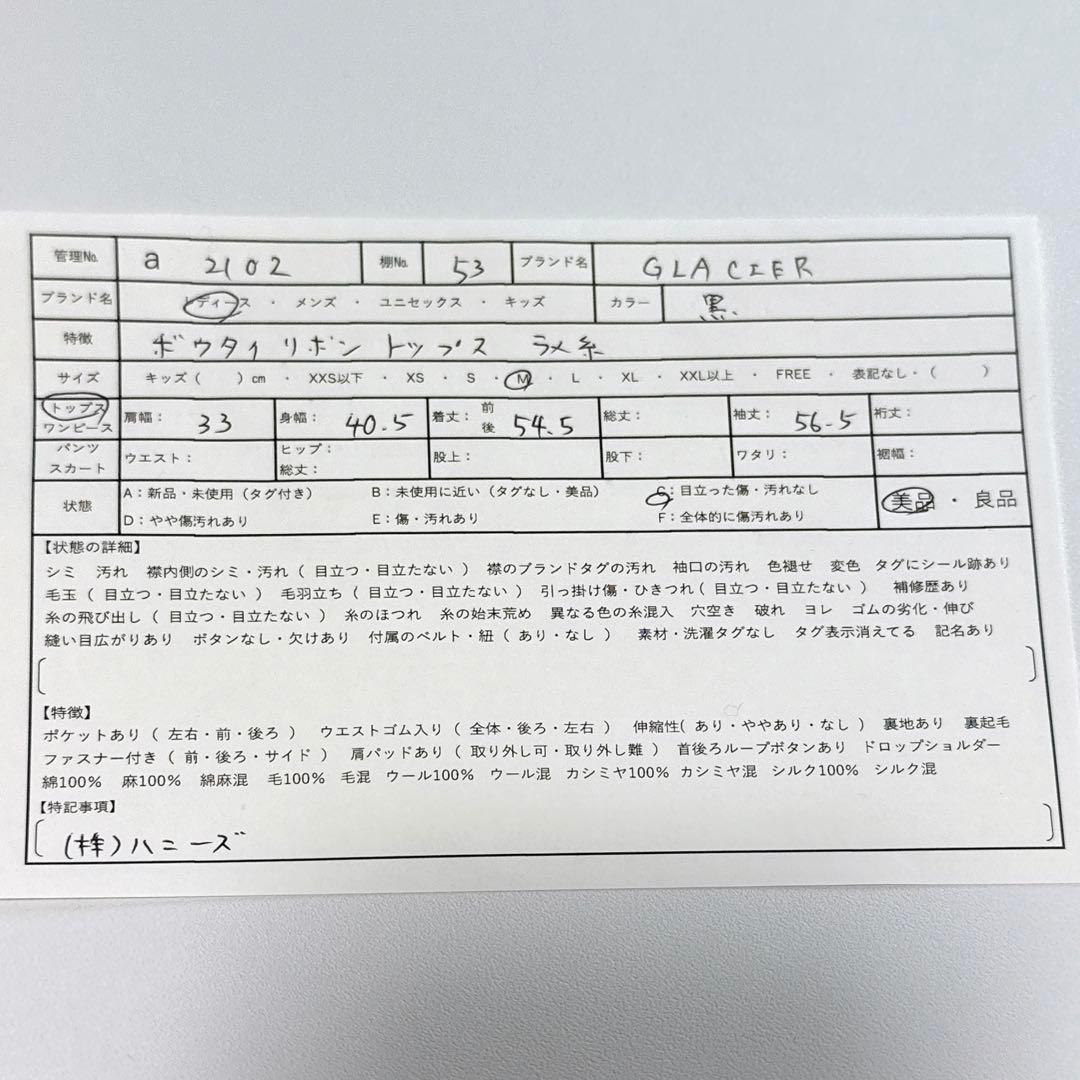 管理No. a 2102 棚No. 53 ブランド名 GLACIER
ブランド名 レディース ・ メンズ ・ ユニセックス ・ キッズ カラー 黒
特徴 ボウタイ リボン トップス ラメ糸
サイズ キッズ ( ) cm ・ XXS以下 ・ XS ・ S ・ M ・ L ・ XL ・ XXL以上 ・ FREE ・ 表記なし・( )
トップス
ワンピース
肩幅: 33 身幅: 40.5 着丈: 前
後 54.5 総丈: 袖丈: 56.5 裄丈:
パンツ
スカート
ウエスト: ヒップ:
総丈:
股上: 股下: ワタリ: 裾幅:
状態
A:新品・未使用(タグ付き) B:未使用に近い(タグなし・美品) C:目立った傷・汚れなし
D:やや傷汚れあり E:傷・汚れあり F:全体的に傷汚れあり
美品 ・ 良品
【状態の詳細】
シミ 汚れ 襟内側のシミ・汚れ ( 目立つ・目立たない ) 襟のブランドタグの汚れ 袖口の汚れ 色褪せ 変色 タグにシール跡あり
毛玉 ( 目立つ・目立たない ) 毛羽立ち ( 目立つ・目立たない ) 引っ掛け傷・ひきつれ ( 目立つ・目立たない ) 補修歴あり
糸の飛び出し ( 目立つ・目立たない ) 糸のほつれ 糸の始末荒め 異なる色の糸混入 穴空き 破れ ヨレ ゴムの劣化・伸び
縫い目広がりあり ボタンなし・欠けあり 付属のベルト・紐 ( あり・なし ) 素材・洗濯タグなし タグ表示消えてる 記名あり
【特徴】
ポケットあり ( 左右・前・後ろ ) ウエストゴム入り ( 全体・後ろ・左右 ) 伸縮性( あり・ややあり・なし ) 裏地あり 裏起毛
ファスナー付き ( 前・後ろ・サイド ) 肩パッドあり ( 取り外し可・取り外し難 ) 首後ろループボタンあり ドロップショルダー
綿100% 麻100% 綿麻混 毛100% 毛混 ウール100% ウール混 カシミヤ100% カシミヤ混 シルク100% シルク混
【特記事項】
(株)ハニーズ